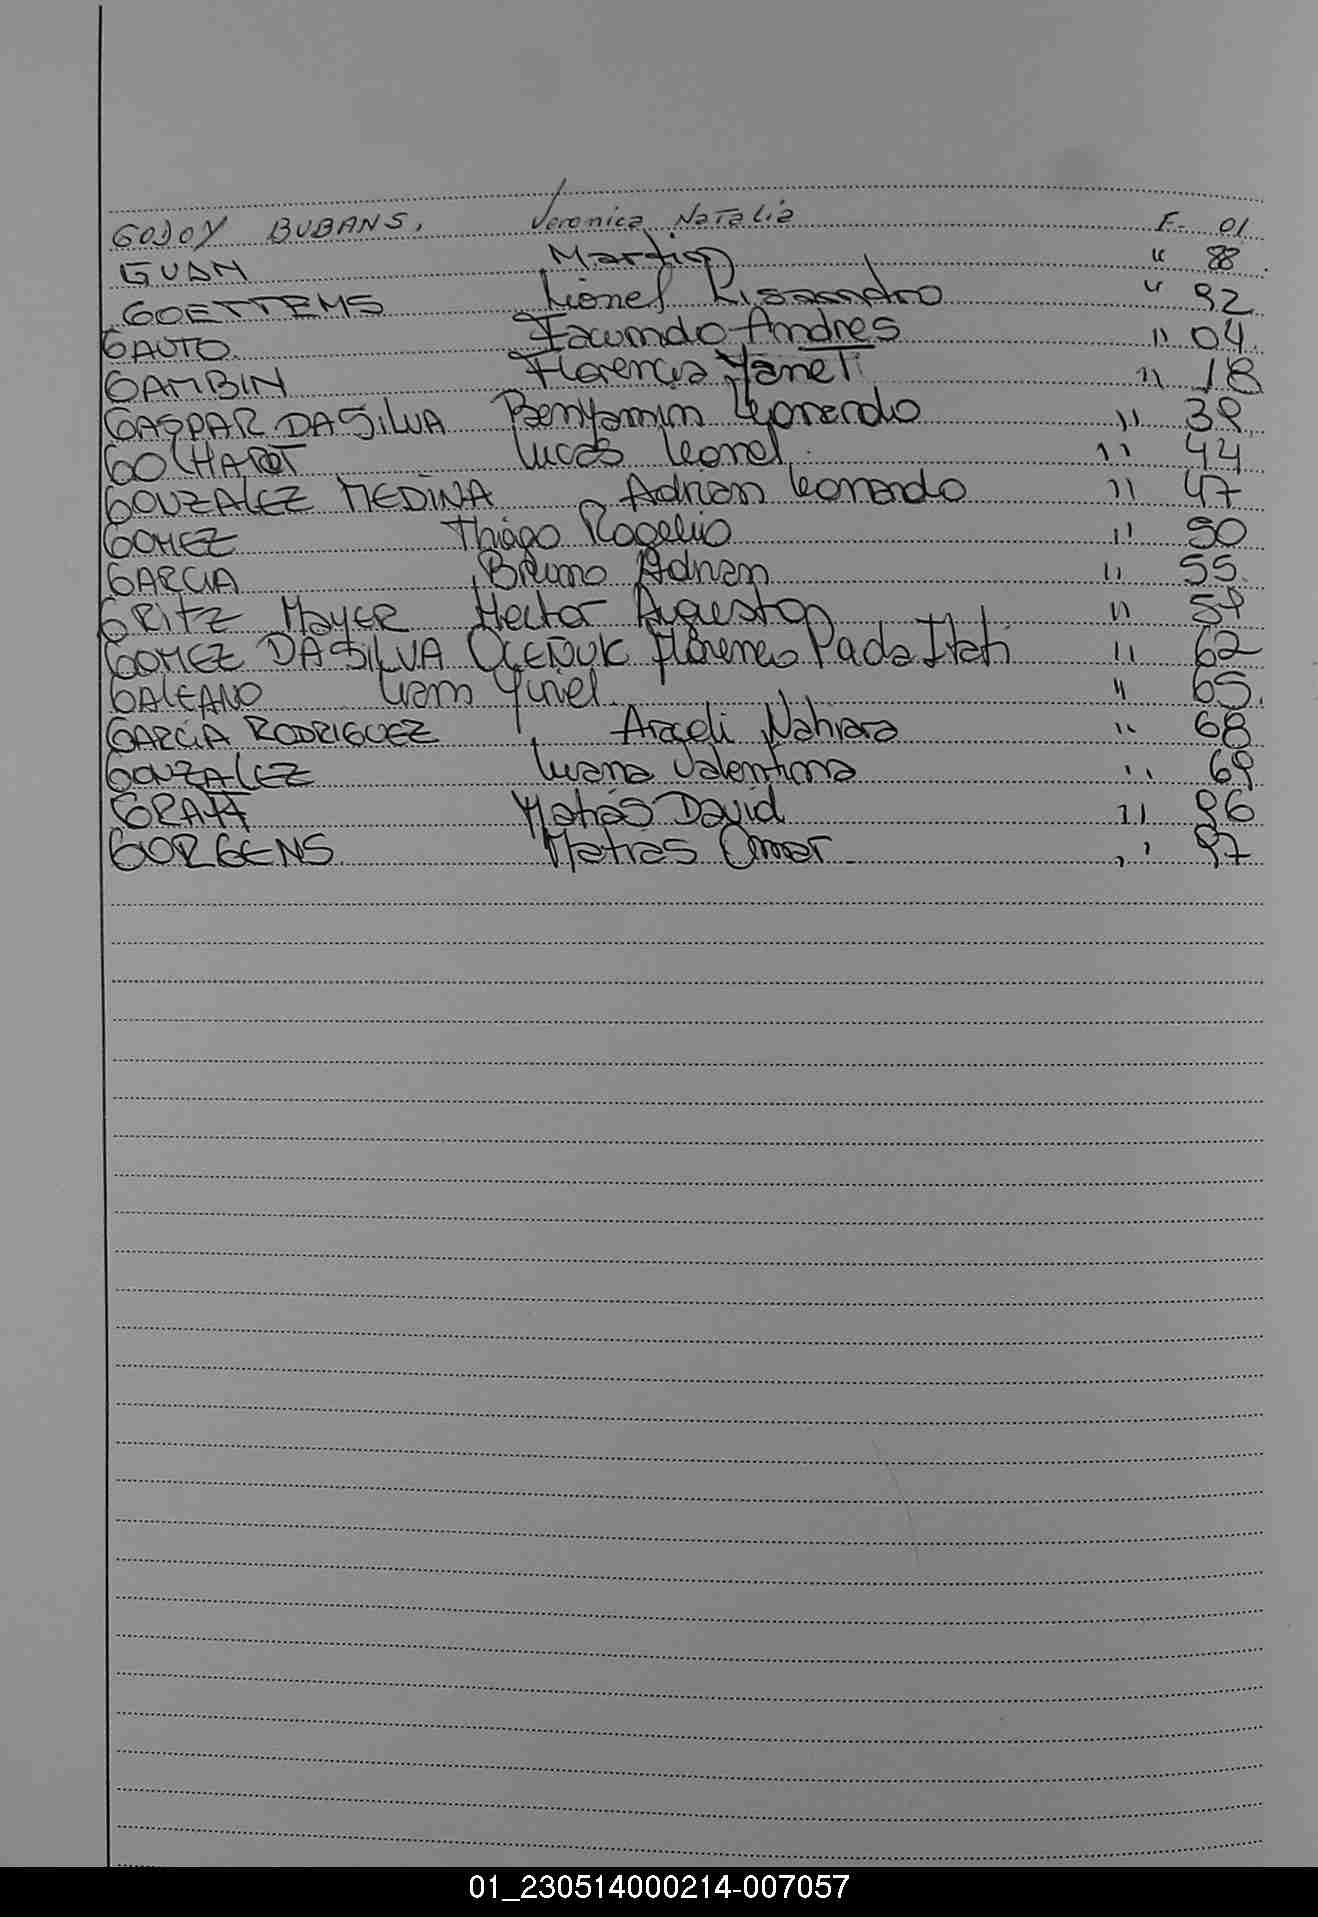 GODOY BUBANS, Veronica Natalia F. 01
GUAN Martin " 88
GOETTEMS Lionel Lisandro " 92
GAUTO Facundo Andres " 04
GAMBIN Florencia Yanet " 18
GASPAR DASILVA Benyamin Leonardo " 39
GOLHARDT Lucas Leonel " 44
GONZALEZ MEDINA Adrian Leonardo " 47
GOMEZ Thiago Rogelio " 50
GARCIA Bruno Adrian " 55
GRITZ MAYER Hector Augusto " 57
GOMEZ DASILVA Florencia Itati " 62
GALEANO Liam Yuriel " 65
GARCIA RODRIGUEZ Araceli Nahiara " 68
GONZALEZ Luana Valentina " 69
GRAFF Matias David " 96
GORGENS Matias Omar " 97
01_230514000214-007057